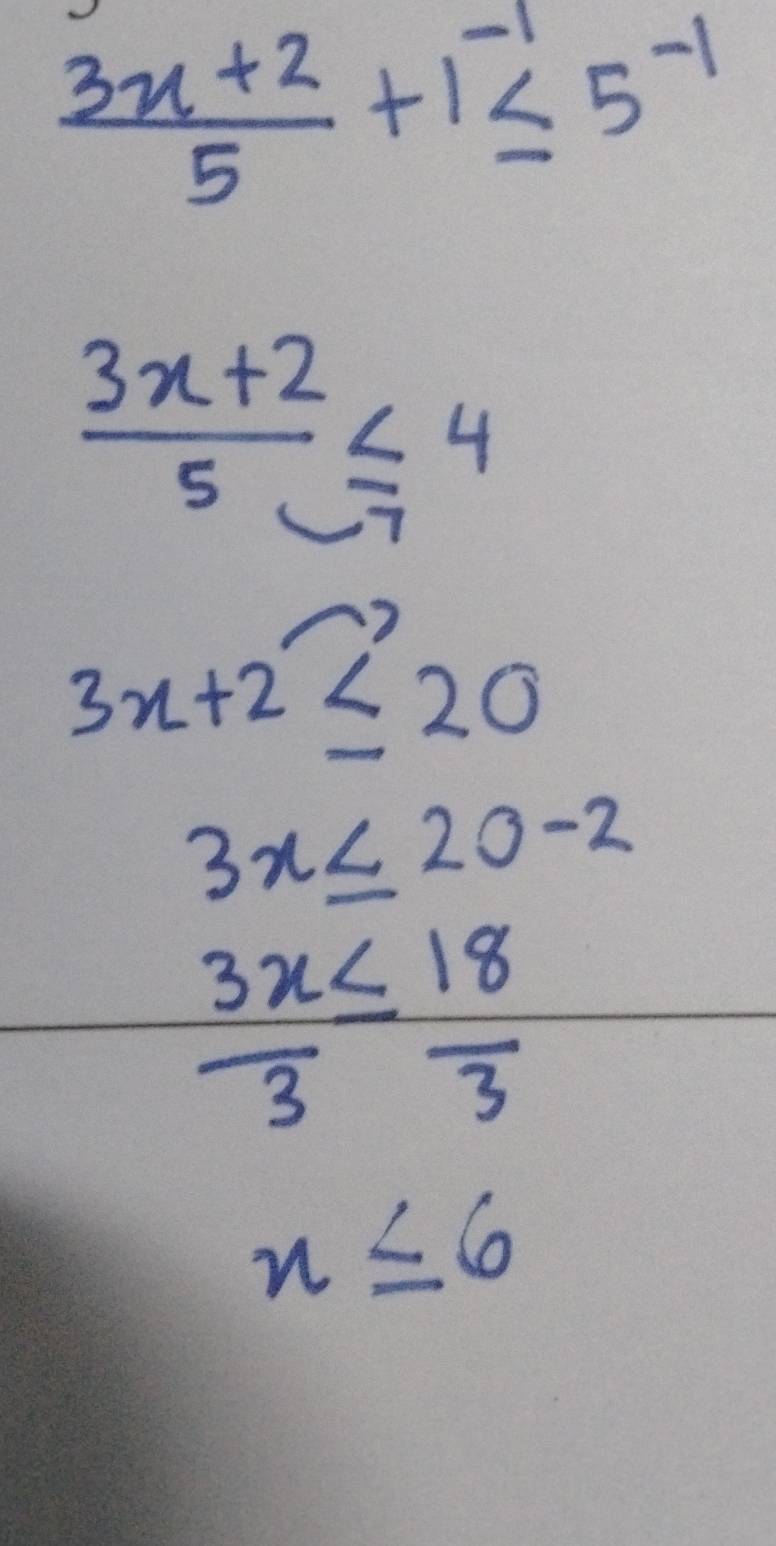 (3x+2)/5 + 1⁻¹ ≤ 5⁻¹
(3x+2)/5 ≤ 4
3x+2 ≤ 20
3x ≤ 20-2
3x/3 ≤ 18/3
x ≤ 6